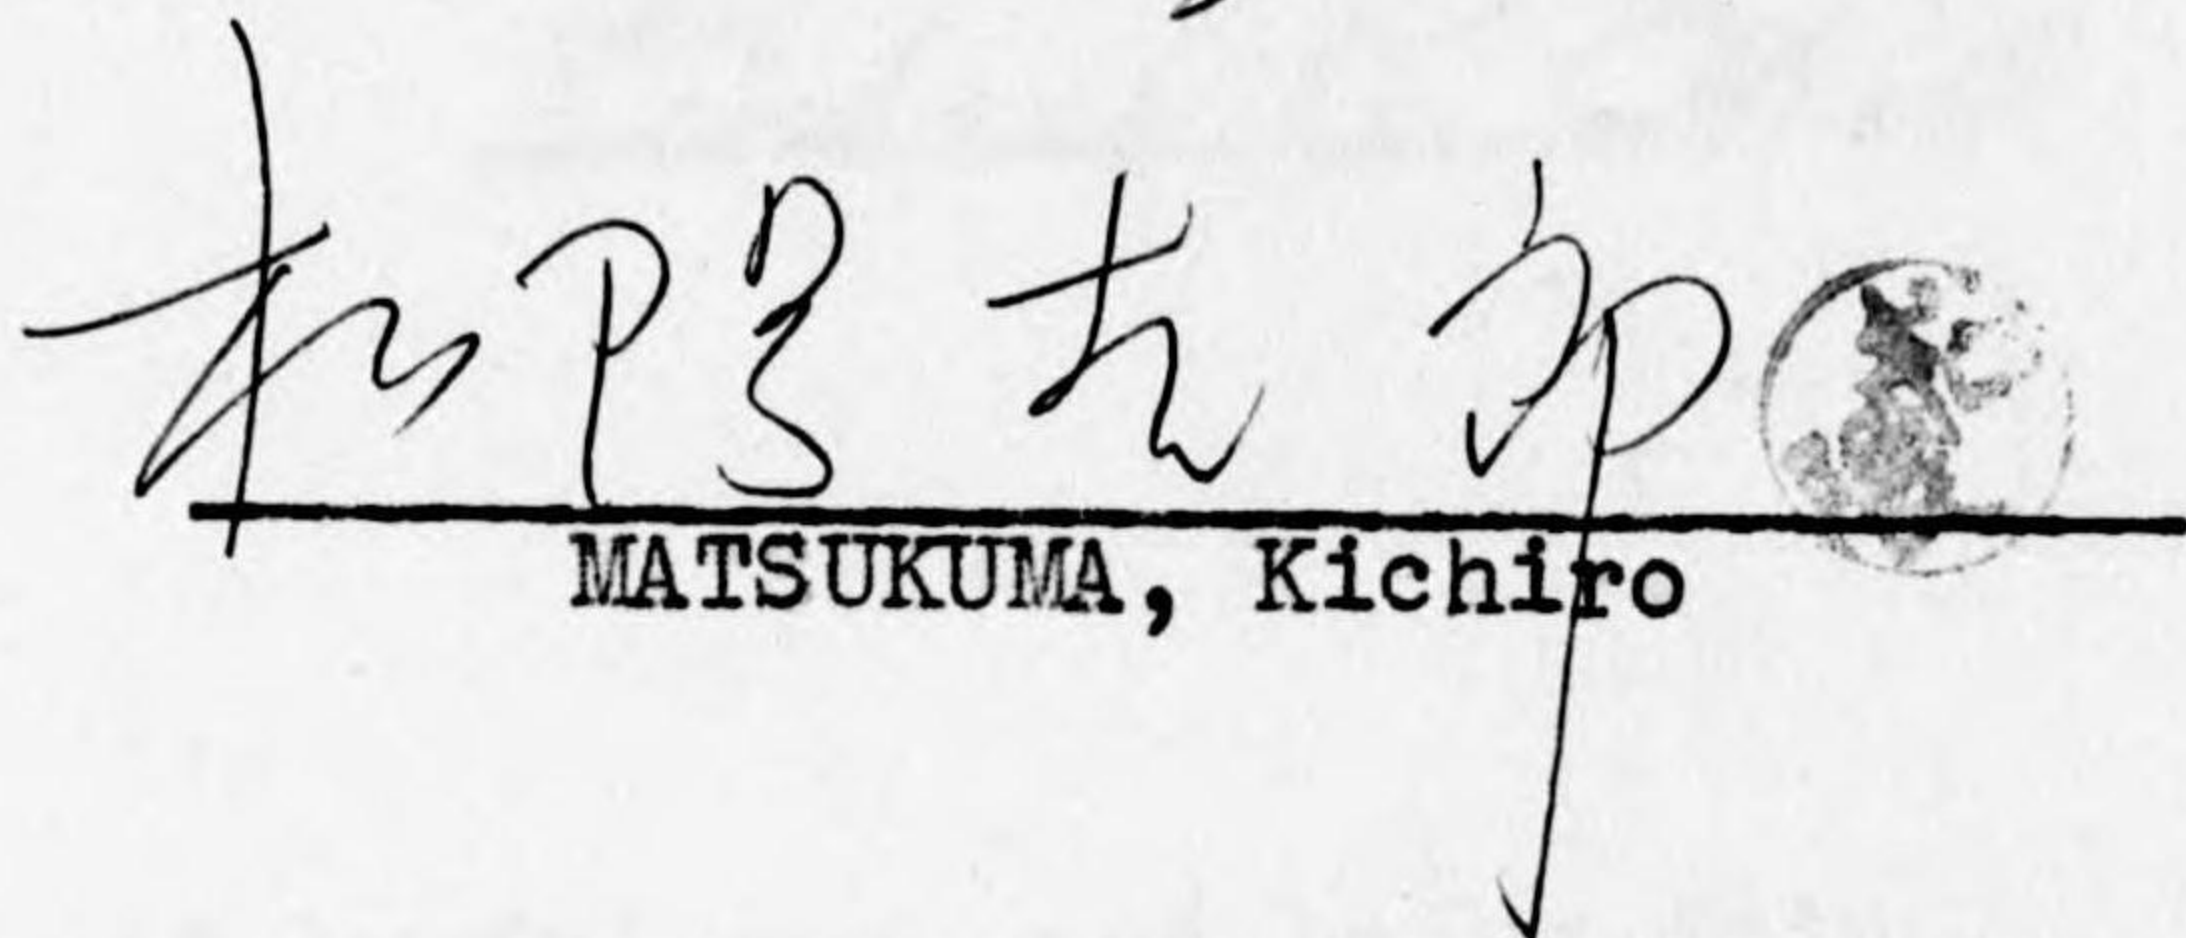 松隈吉郎
MATSUKUMA, Kichiro